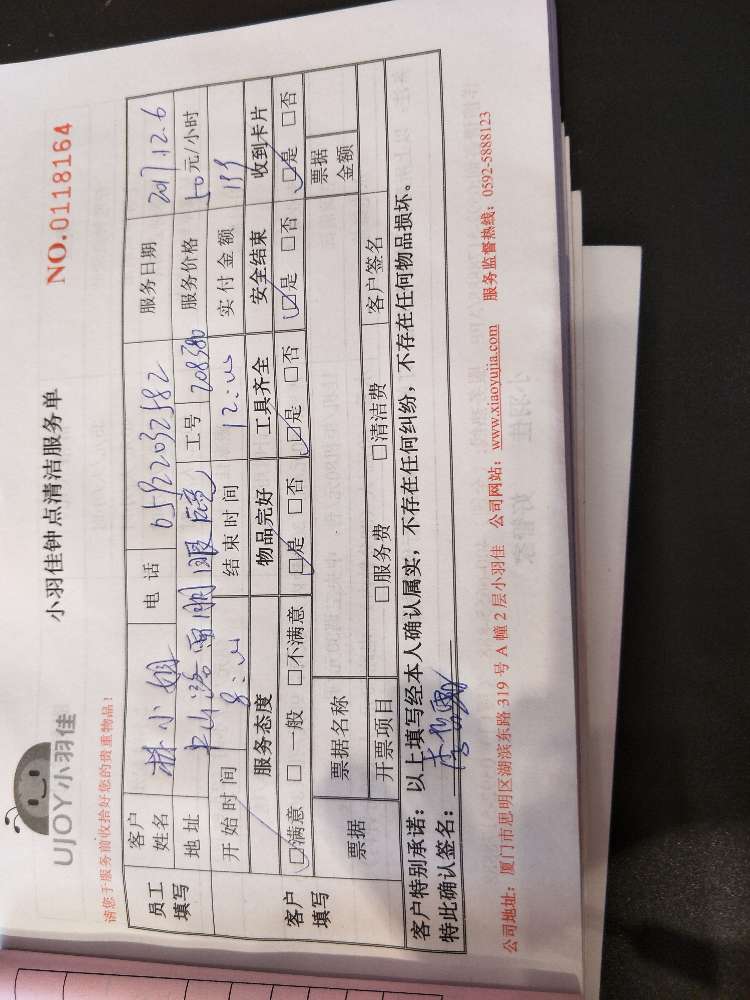 UJOY小羽佳
小羽佳钟点清洁服务单
NO.0118164
请您于服务前收拾好您的贵重物品!
员工填写
客户姓名 林小姐 电话 服务日期 2017.12.6
地址 中山路 眼 工号 208380 服务价格 50元/小时
开始时间 8: 结束时间 12: 实付金额
客户填写
服务态度 物品完好 工具齐全 安全结束 收到卡片
☑满意 □一般 □不满意 ☑是 □否 ☑是 □否 ☑是 □否 ☑是 □否
票据 票据名称 票据金额
开票项目 □服务费 □清洁费 客户签名
客户特别承诺:以上填写经本人确认属实,不存在任何纠纷,不存在任何物品损坏。
特此确认签名:
公司地址:厦门市思明区湖滨东路319号A幢2层小羽佳 公司网站:www.xiaoyujia.com 服务监督热线:0592-5888123